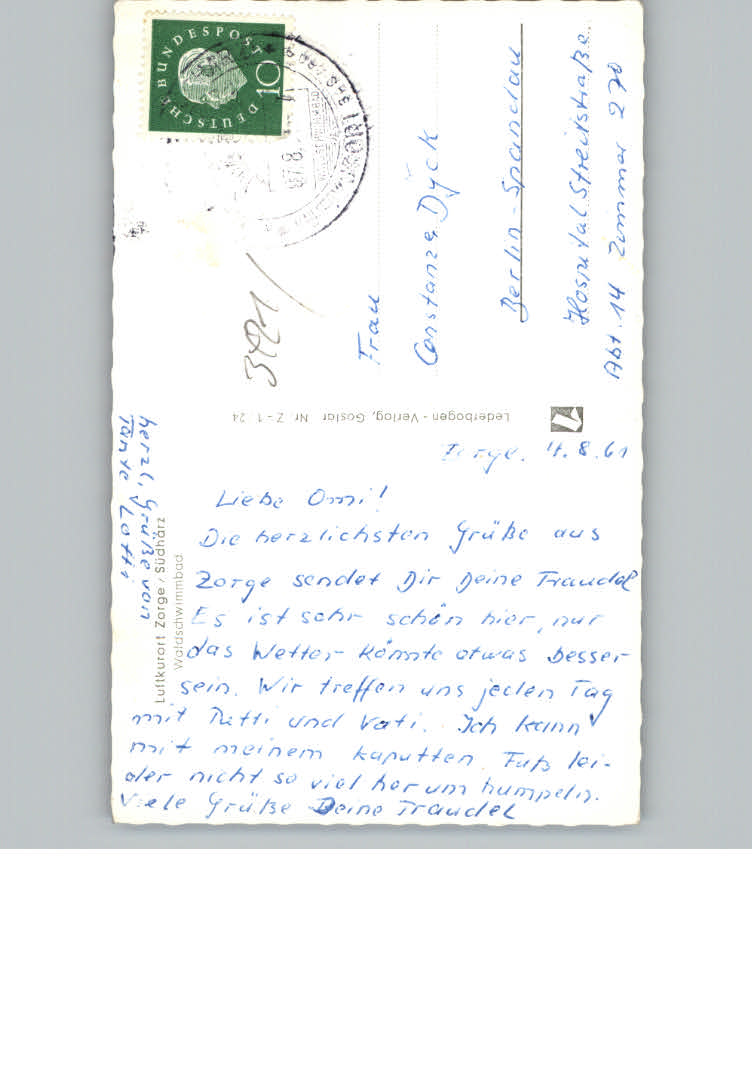 DEUTSCHE BUNDESPOST
10
3421
Frau
Constanze Dÿck
Berlin-Spandau
Hospital Streitstraße
Abt. 14 Zimmer 270
Lederbogen-Verlag, Goslar Nr. Z-1 24
Luftkurort Zorge / Südharz
Waldschwimmbad
Zorge, 4.8.61
Liebe Omi!
Die herzlichsten Grüße aus
Zorge sendet Dir Deine Traudel
Es ist sehr schön hier, nur
das Wetter könnte etwas besser
sein. Wir treffen uns jeden Tag
mit Tutti und Vati. Ich kann
mit meinem kaputten Fuß lei-
der nicht so viel herum humpeln.
Viele Grüße Deine Traudel
herzl. Grüße von
Tante Lotti